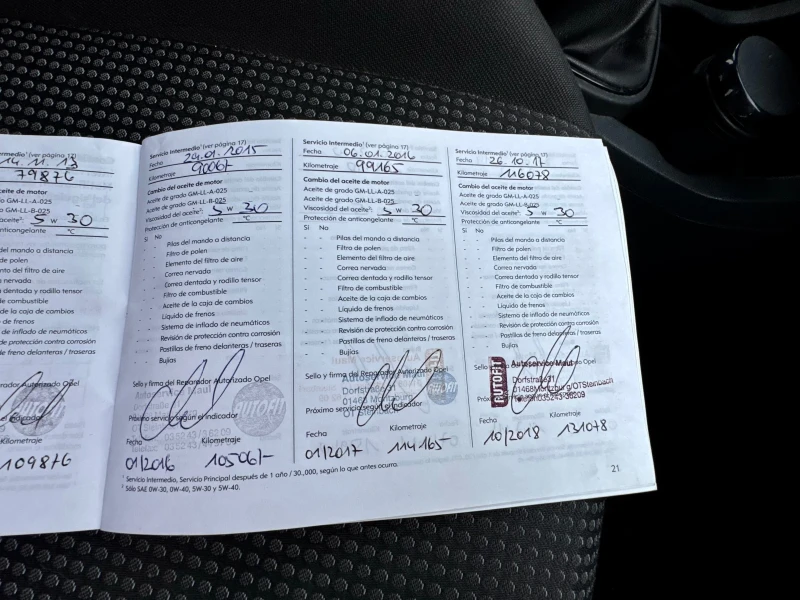 (ver página 17)
14.11.13
79876
Cambio del aceite de motor
GM-LL-A-025
GM-LL-B-025
aceite²: 5 W 30
anticongelante °C
del mando a distancia
de polen
Elemento del filtro de aire
nervada
dentada y rodillo tensor
de combustible
de la caja de cambios
de frenos
de inflado de neumáticos
de protección contra corrosión
de freno delanteras / traseras
Autorizado Opel
el indicador
Kilometraje
109876
Servicio Intermedio¹ (ver página 17)
Fecha 29.01.2015
Kilometraje 90061-
Cambio del aceite de motor
Aceite de grado GM-LL-A-025
Aceite de grado GM-LL-B-025
Viscosidad del aceite²: 5 W 30
Protección de anticongelante °C
Sí No
- - Pilas del mando a distancia
- - Filtro de polen
- - Elemento del filtro de aire
- - Correa nervada
- - Correa dentada y rodillo tensor
- - Filtro de combustible
- - Aceite de la caja de cambios
- - Líquido de frenos
- - Sistema de inflado de neumáticos
- - Revisión de protección contra corrosión
- - Pastillas de freno delanteras / traseras
- - Bujías
Sello y firma del Reparador Autorizado Opel
Autoservice Maul
AUTOFIT
Próximo servicio según el indicador
Fecha Kilometraje
01/2016 105061-
Servicio Intermedio¹ (ver página 17)
Fecha 06.01.2016
Kilometraje 99165
Cambio del aceite de motor
Aceite de grado GM-LL-A-025
Aceite de grado GM-LL-B-025
Viscosidad del aceite²: 5 W 30
Protección de anticongelante °C
Sí No
- - Pilas del mando a distancia
- - Filtro de polen
- - Elemento del filtro de aire
- - Correa nervada
- - Correa dentada y rodillo tensor
- - Filtro de combustible
- - Aceite de la caja de cambios
- - Líquido de frenos
- - Sistema de inflado de neumáticos
- - Revisión de protección contra corrosión
- - Pastillas de freno delanteras / traseras
- - Bujías
Sello y firma del Reparador Autorizado Opel
Autoservice Maul
Dorfstraße31
01468 Moritzburg
Próximo servicio según el indicador
Fecha Kilometraje
01/2017 114165
Servicio Intermedio¹ (ver página 17)
Fecha 26.10.17
Kilometraje 116078
Cambio del aceite de motor
Aceite de grado GM-LL-A-025
Aceite de grado GM-LL-B-025
Viscosidad del aceite²: 5 W 30
Protección de anticongelante °C
Sí No
- - Pilas del mando a distancia
- - Filtro de polen
- - Elemento del filtro de aire
- - Correa nervada
- - Correa dentada y rodillo tensor
- - Filtro de combustible
- - Aceite de la caja de cambios
- - Líquido de frenos
- - Sistema de inflado de neumáticos
- - Revisión de protección contra corrosión
- - Pastillas de freno delanteras / traseras
- - Bujías
AUTOFIT
Autoservice Maul
Dorfstraße31
01468Moritzburg/OTSteinbach
035243-36209
Fecha Kilometraje
10/2018 131078
¹ Servicio Intermedio, Servicio Principal después de 1 año / 30.,000, según lo que antes ocurra.
² Sólo SAE 0W-30, 0W-40, 5W-30 y 5W-40.
21